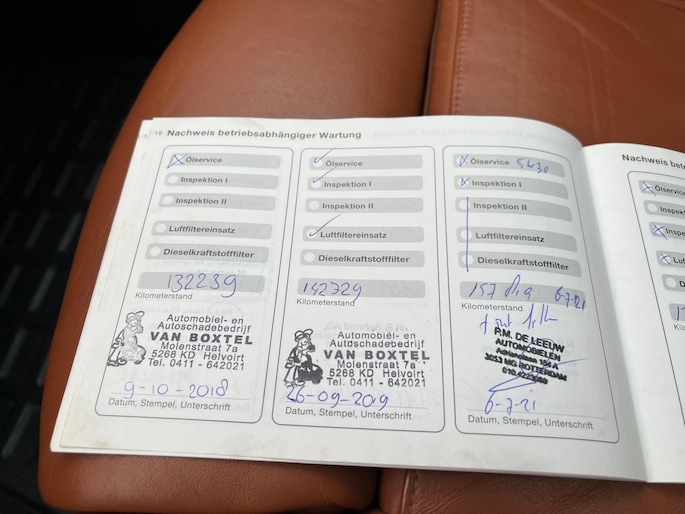 18 Nachweis betriebsabhängiger Wartung
Ölservice
Inspektion I
Inspektion II
Luftfiltereinsatz
Dieselkraftstofffilter
132239
Kilometerstand
Automobiel- en
Autoschadebedrijf
VAN BOXTEL
Molenstraat 7a
5268 KD Helvoirt
Tel. 0411 - 642021
9-10-2018
Datum, Stempel, Unterschrift
Ölservice
Inspektion I
Inspektion II
Luftfiltereinsatz
Dieselkraftstofffilter
142729
Kilometerstand
Automobiel- en
Autoschadebedrijf
VAN BOXTEL
Molenstraat 7a
5268 KD Helvoirt
Tel. 0411 - 642021
26-09-2019
Datum, Stempel, Unterschrift
Ölservice 5W30
Inspektion I
Inspektion II
Luftfiltereinsatz
Dieselkraftstofffilter
157 6-7-21
Kilometerstand
P.M. DE LEEUW
AUTOMOBIELEN
Adriaanlaan 154 A
3053 MG ROTTERDAM
6-7-21
Datum, Stempel, Unterschrift
Nachweis
Ölservice